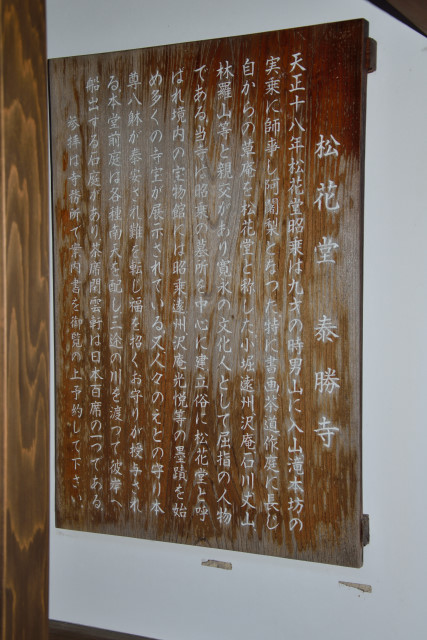 松花堂 泰勝寺
天正十八年松花堂昭乗は九才の時男山に入山滝本坊の
実乗に師事し阿闍梨となつた特に書画茶道作庭に長じ
自からの草庵を松花堂と称した小堀遠州沢庵石川丈山
林羅山等と親交があり寛永の文化人として屈指の人物
である。当寺は昭乗の墓所を中心に建立俗に松花堂と呼
ばれ境内の宝物館には昭乗遠州沢庵光悦等の墨蹟を始
め多くの寺宝が展示されている又人々のえとの守り本
尊八躰が奉安され難を転じ福を招くお守りが授与され
る。本堂前庭は各種南天を配し三途の川を渡つて彼岸へ
船出する石庭があり茶席閑雲軒は日本百席の一つである。
参拝は寺務所で案内書を御覧の上予約して下さい。